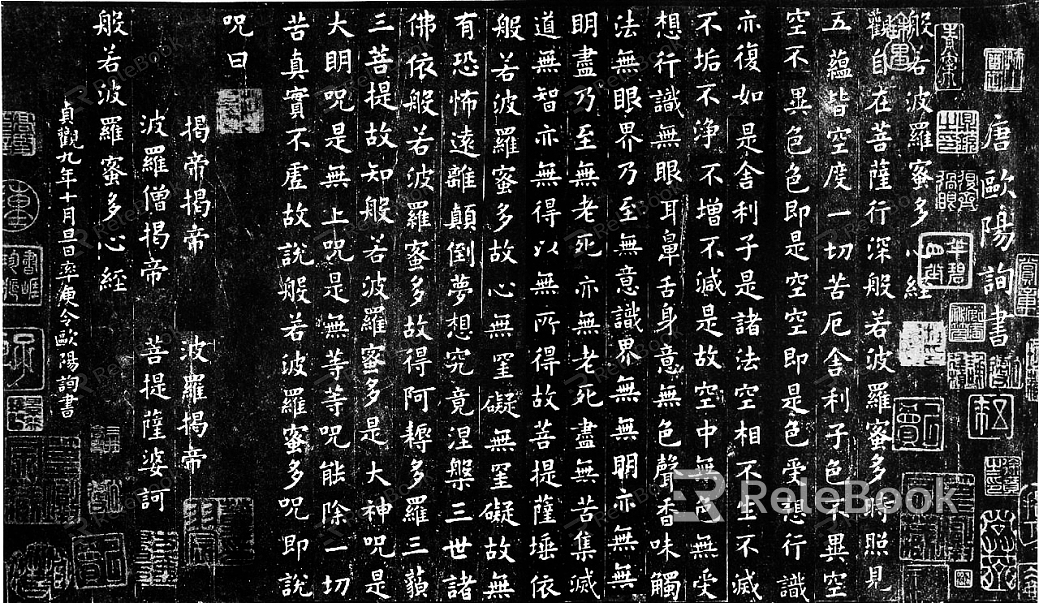 唐歐陽詢書
般若波羅蜜多心經
觀自在菩薩行深般若波羅蜜多時照見
五蘊皆空度一切苦厄舍利子色不異空
空不異色色即是空空即是色受想行識
亦復如是舍利子是諸法空相不生不滅
不垢不淨不增不減是故空中無色無受
想行識無眼耳鼻舌身意無色聲香味觸
法無眼界乃至無意識界無無明亦無無
明盡乃至無老死亦無老死盡無苦集滅
道無智亦無得以無所得故菩提薩埵依
般若波羅蜜多故心無罣礙無罣礙故無
有恐怖遠離顛倒夢想究竟涅槃三世諸
佛依般若波羅蜜多故得阿耨多羅三藐
三菩提故知般若波羅蜜多是大神呪是
大明呪是無上呪是無等等呪能除一切
苦真實不虛故說般若波羅蜜多呪即說
呪曰
揭帝揭帝 波羅揭帝
波羅僧揭帝 菩提薩婆訶
般若波羅蜜多心經
貞觀九年十月旦日率更令歐陽詢書
ReleBook